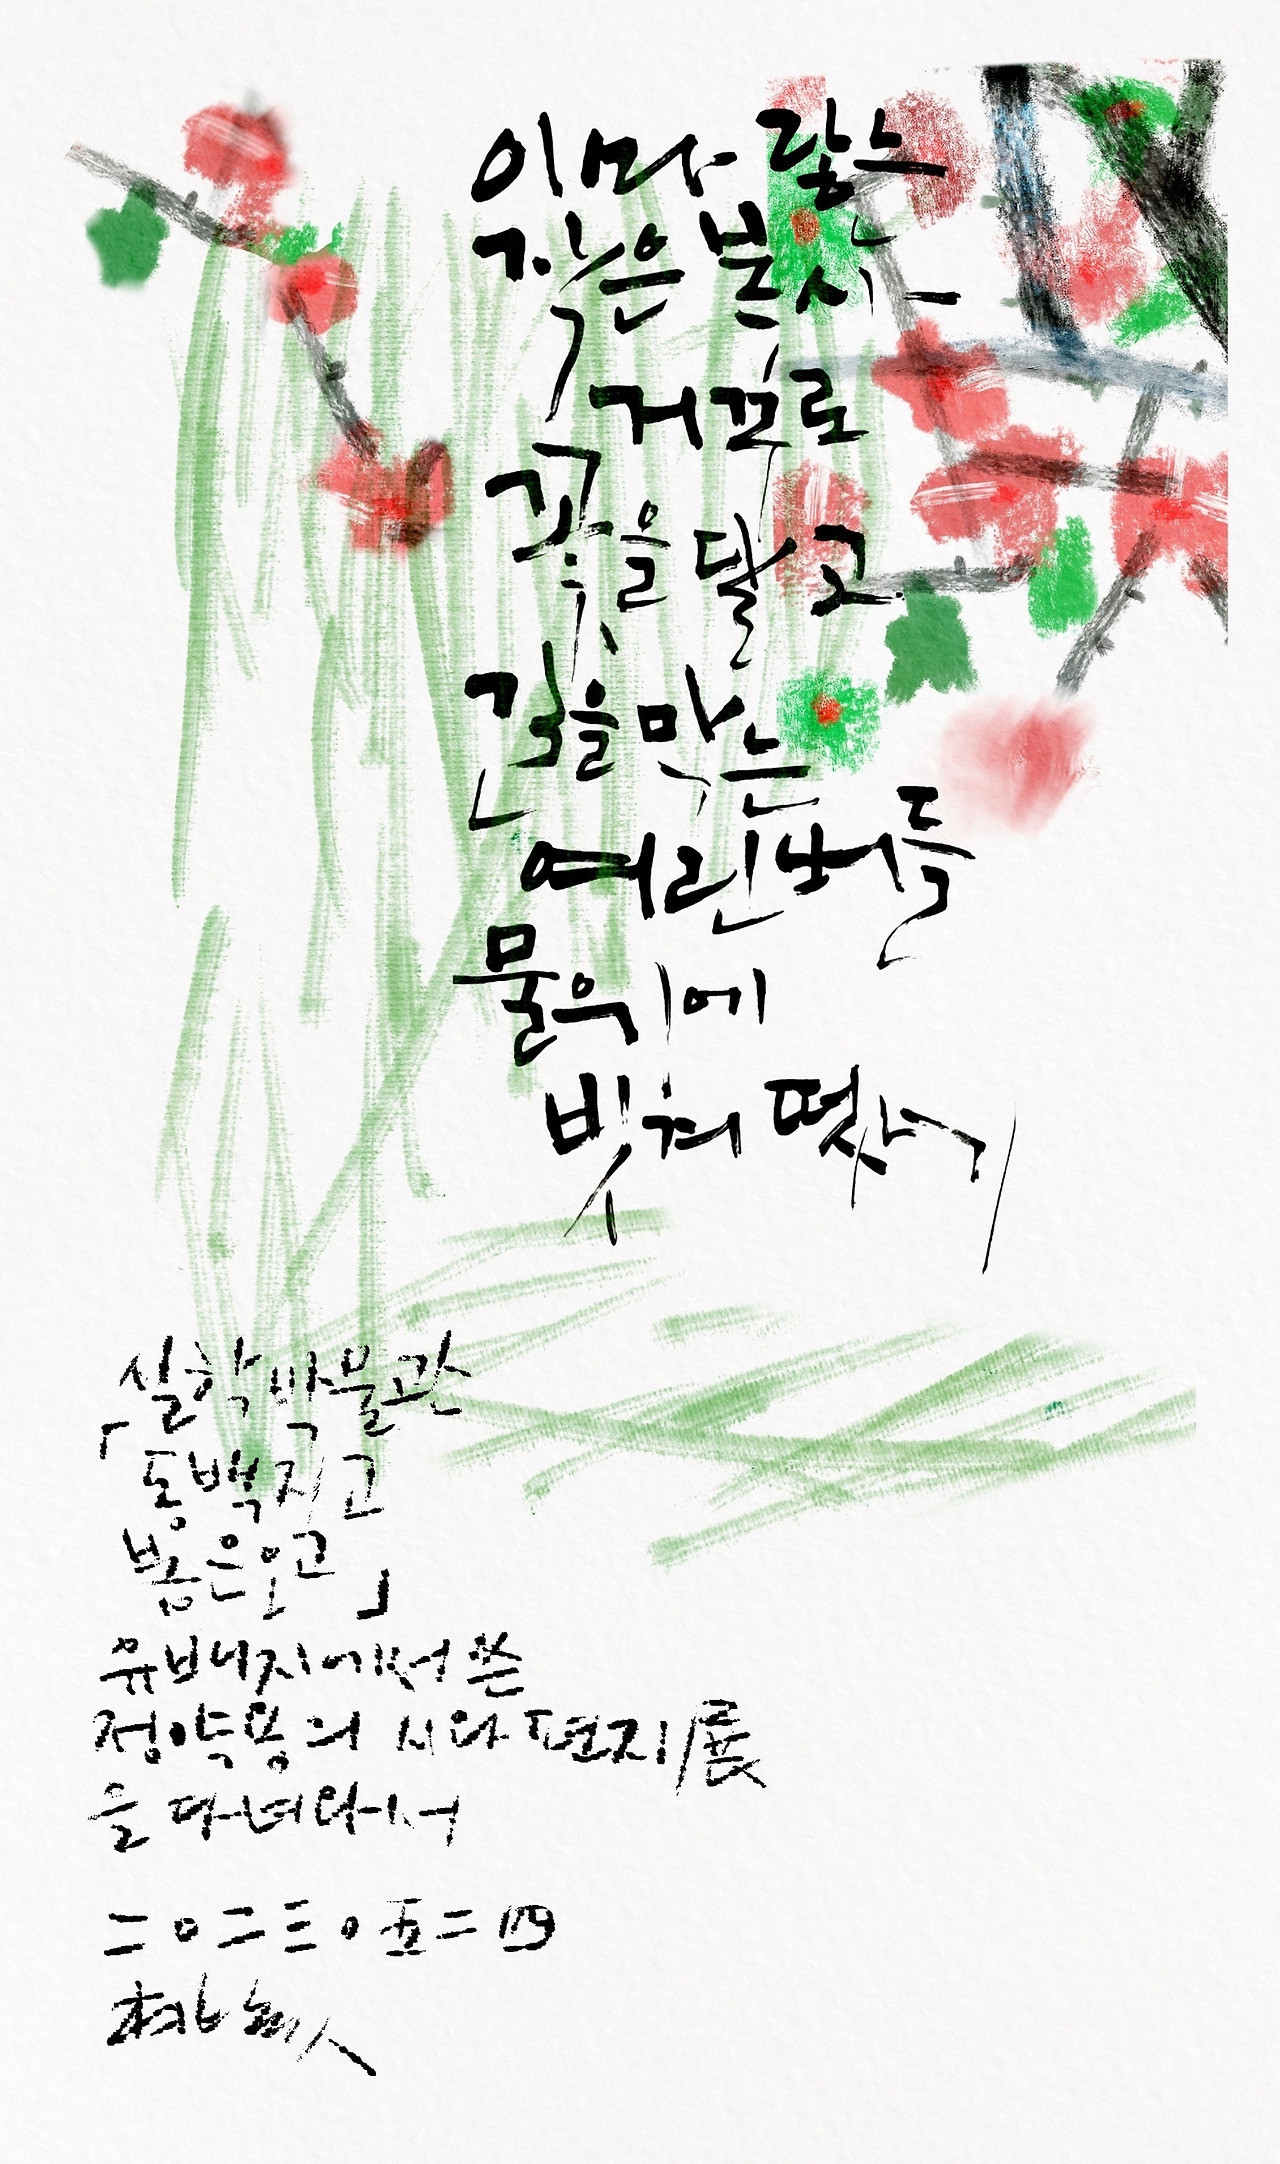 이마 닿는
작은 봄시
거꾸로
꽃을 달고
길을 막는
여린 버들
물 위에
빗겨 떴시
실학박물관
「동백지고
봄은오고」
유배지에서 쓴
정약용의 시와 편지/展
을 다녀와서
二〇二三〇五二四
人